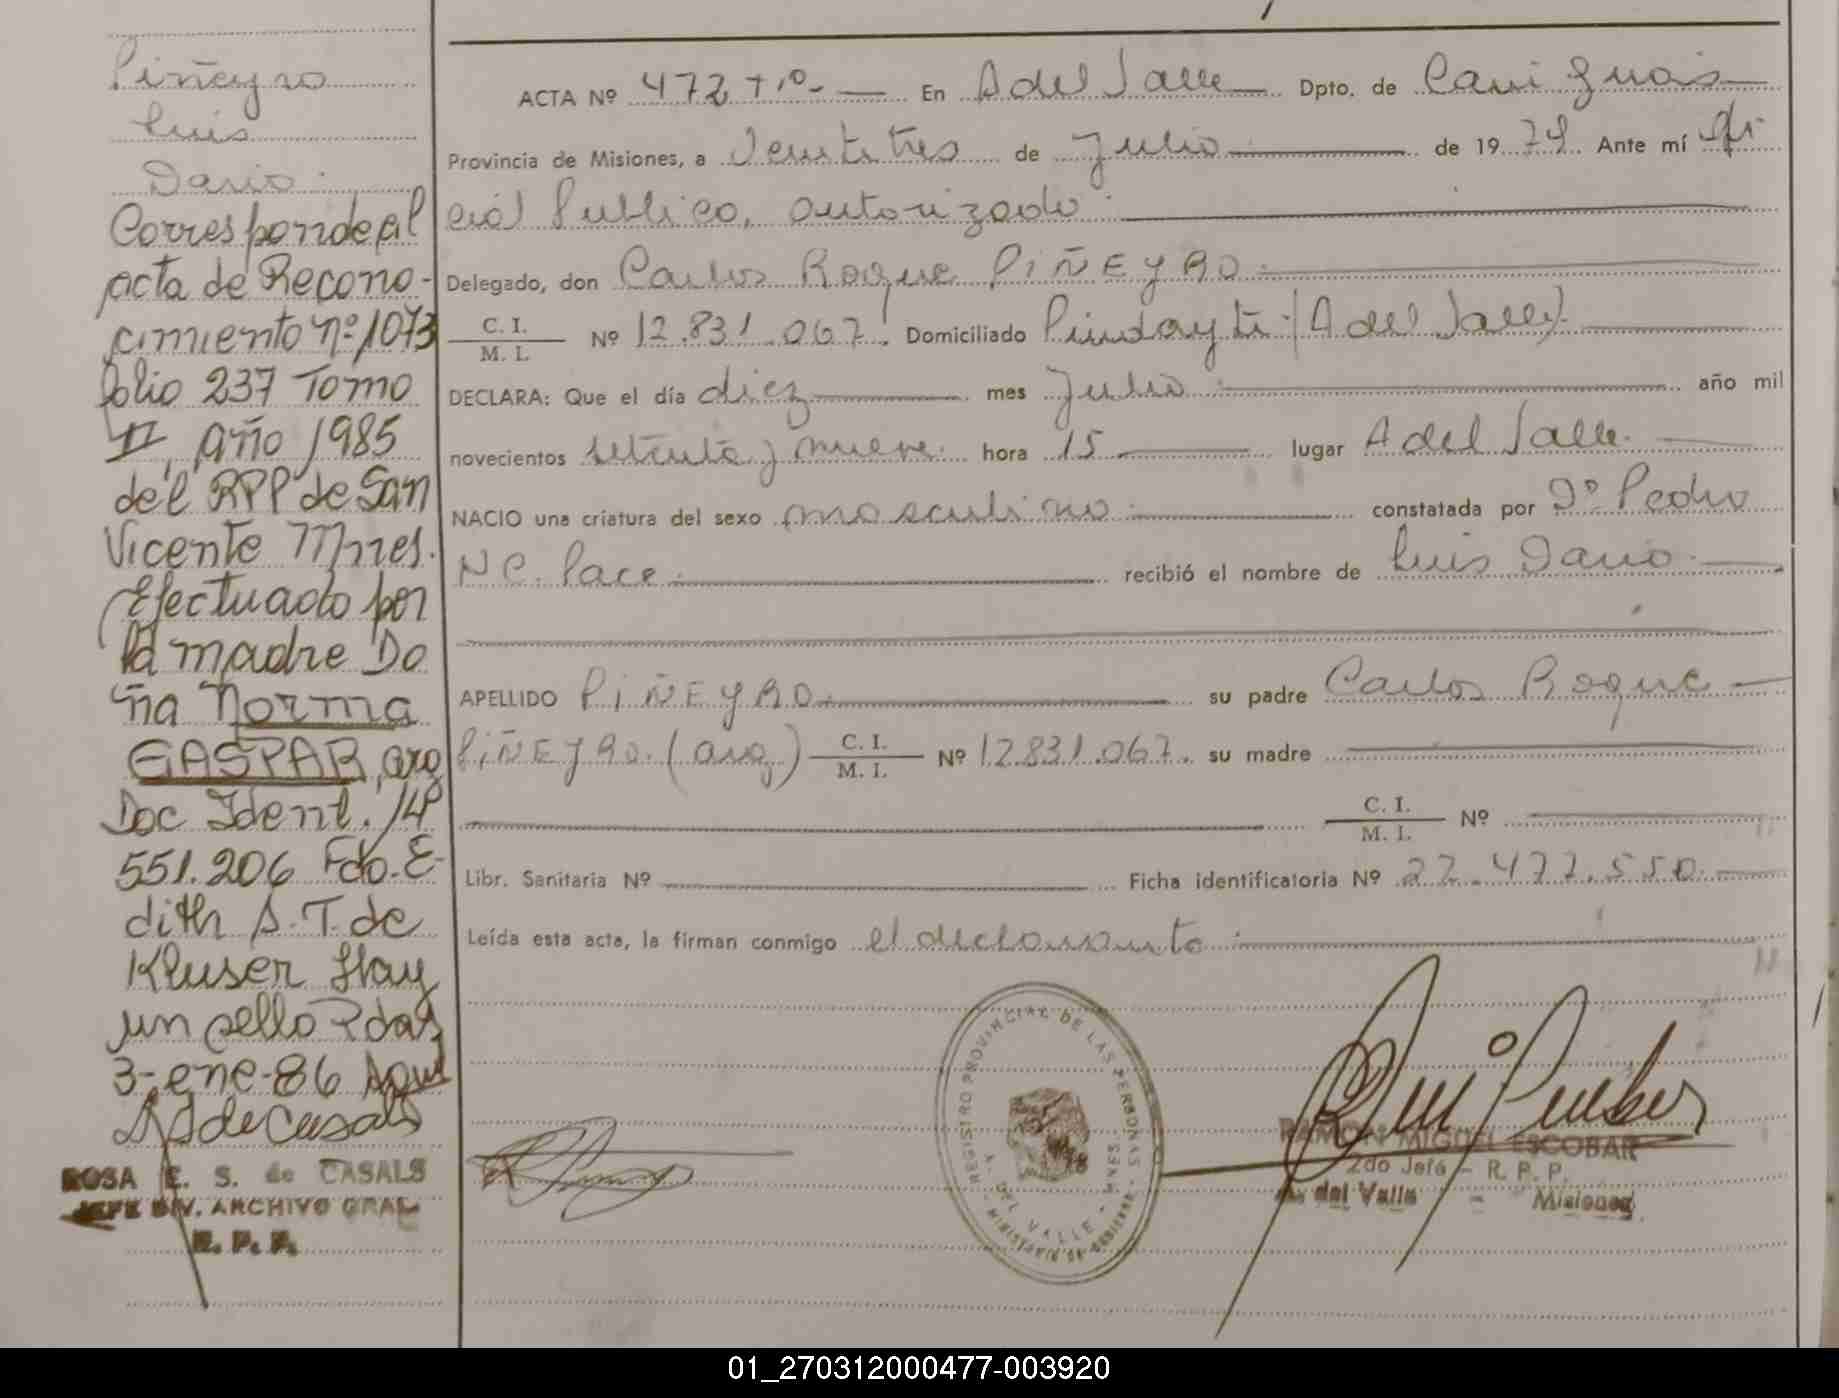 Piñeyro
Luis
Dario.
Corresponde al
acta de Recono-
cimiento nº 1073
folio 237 Tomo
II, año 1985
del RPP de San
Vicente Mnes.
Efectuado por
la madre Do
ña Norma
GASPAR, arg
Doc Ident. 14
551.206 Fdo. E-
dith S. T. de
Kluser Hay
un sello Pdas
3-ene-86
ROSA E. S. de CASALS
JEFE DIV. ARCHIVO GRAL
R. P. P.
ACTA Nº 472 Tº- En A del Valle Dpto. de Cainguás
Provincia de Misiones, a Veintitres de Julio de 19 79. Ante mí Ofi
cial Publico, autorizado
Delegado, don Carlos Roque PIÑEYRO
C. I. / M. I. Nº 12.831.067. Domiciliado Pindayti (A del Valle)
DECLARA: Que el día diez mes Julio año mil
novecientos setenta y nueve hora 15 lugar A del Valle.
NACIO una criatura del sexo masculino constatada por Dº Pedro
N C. Pace. recibió el nombre de Luis Dario
APELLIDO PIÑEYRO su padre Carlos Roque
PIÑEYRO. (arg) C. I. / M. I. Nº 12.831.067. su madre
C. I. / M. I. Nº
Libr. Sanitaria Nº Ficha identificatoria Nº 27.477.550.
Leída esta acta, la firman conmigo el declarante
REGISTRO PROVINCIAL DE LAS PERSONAS
A. DEL VALLE - MNES
RAMON MIGUEL ESCOBAR
2do Jefe - R. P. P.
A. del Valle - Misiones
01_270312000477-003920